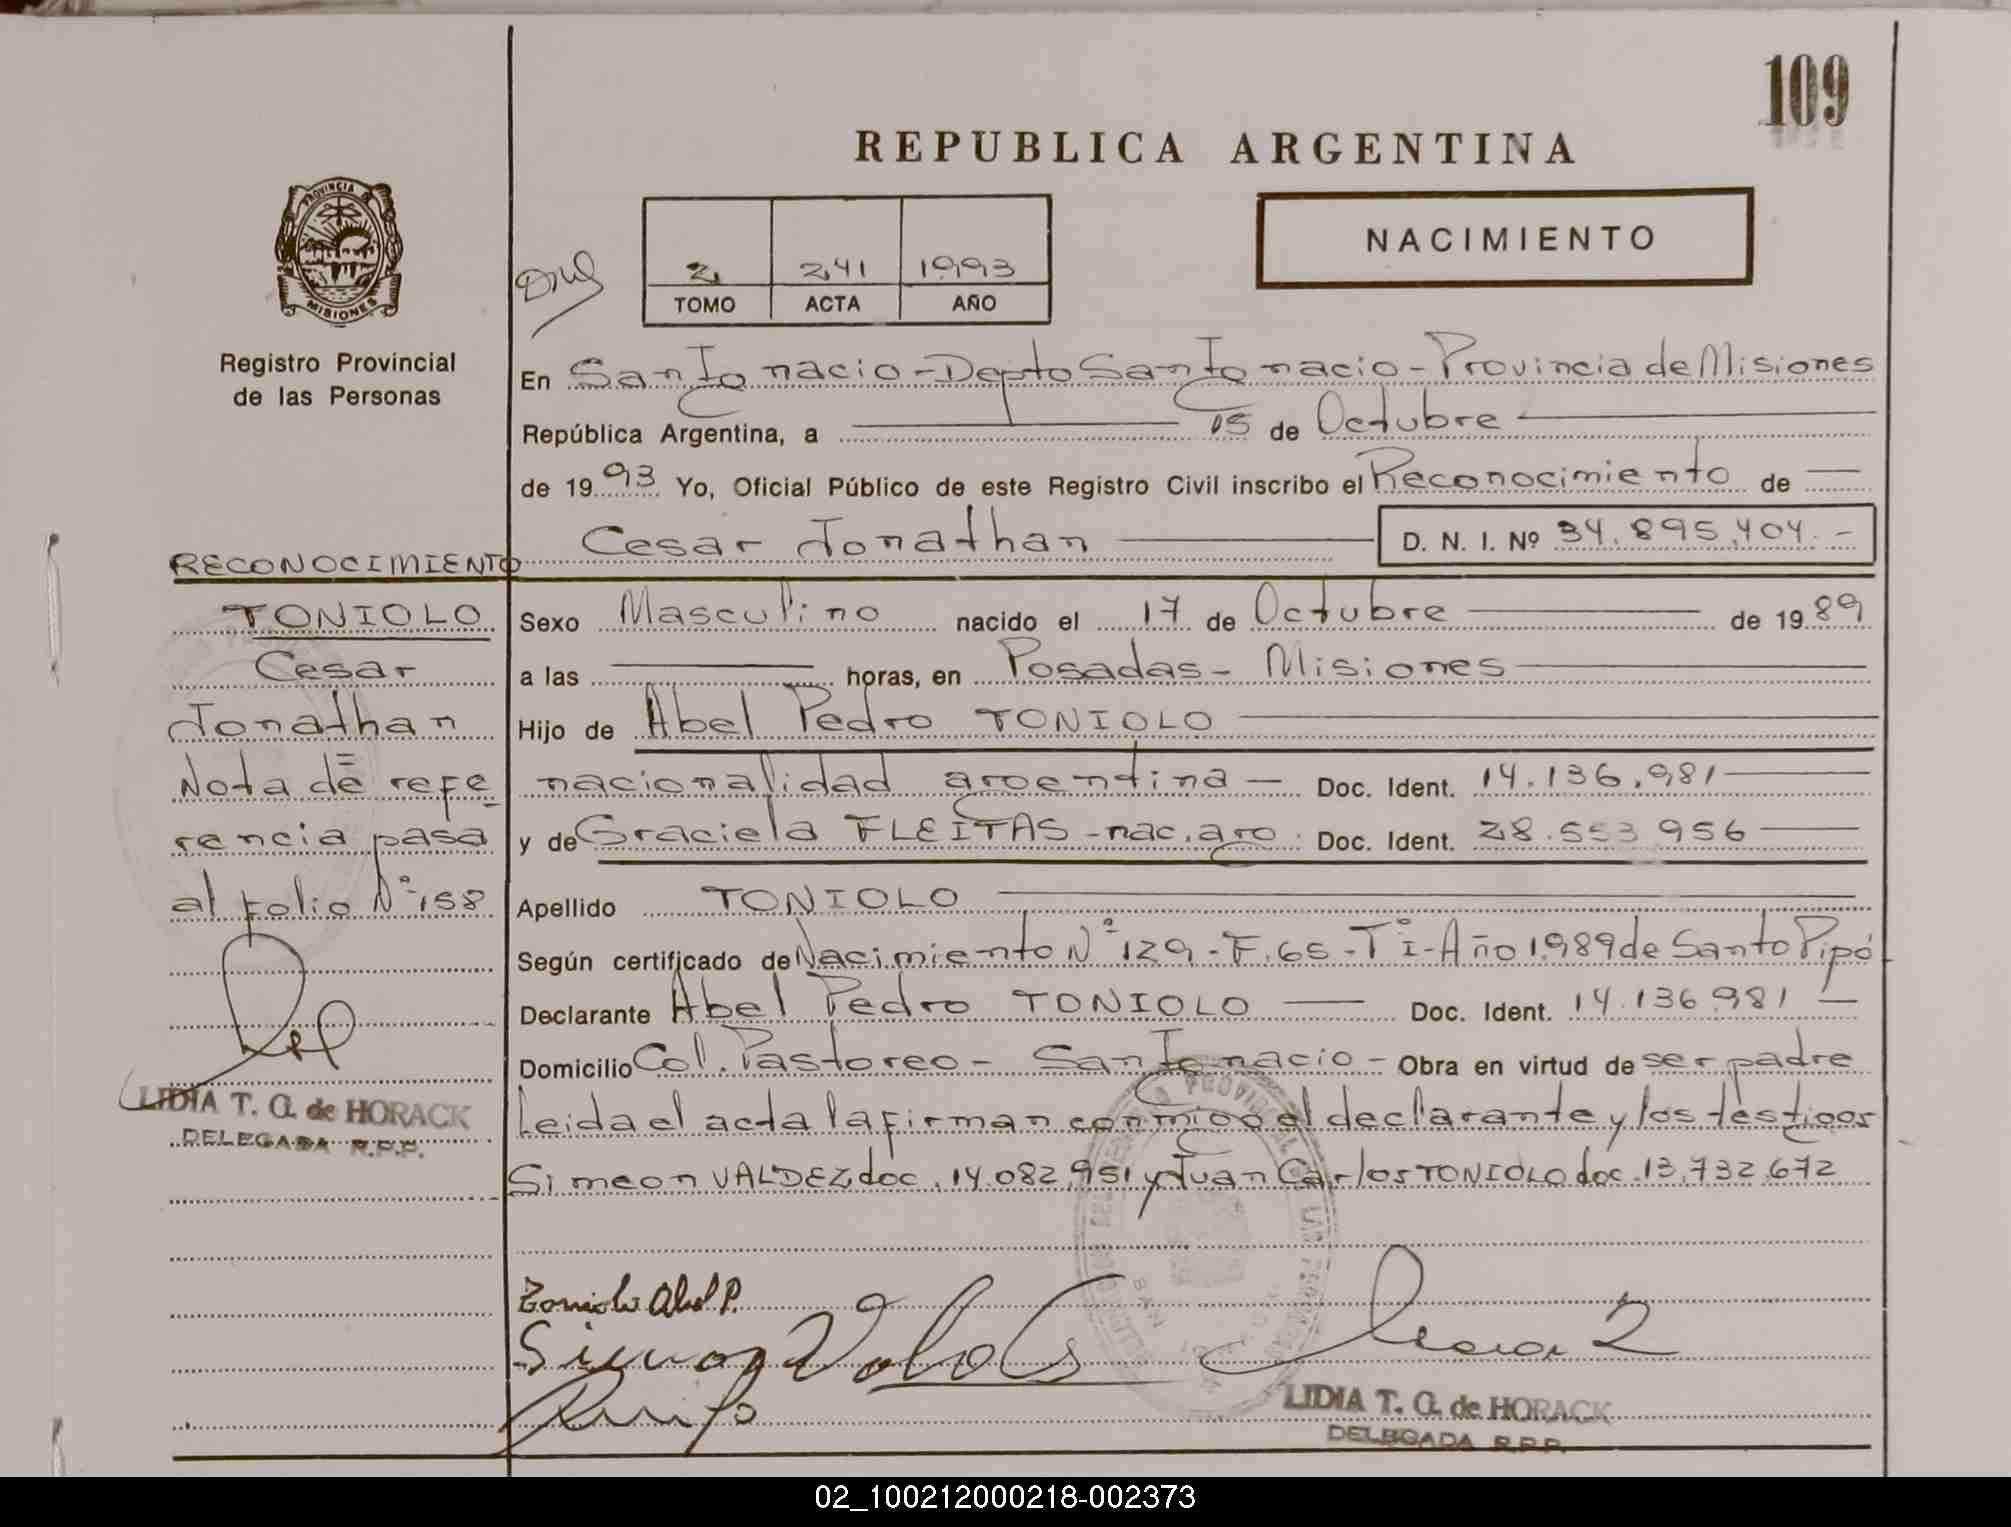 109
REPUBLICA ARGENTINA
PROVINCIA
MISIONES
Registro Provincial
de las Personas
NACIMIENTO
2 241 1993
TOMO ACTA AÑO
En San Ignacio - Depto San Ignacio - Provincia de Misiones
República Argentina, a 15 de Octubre
de 1993 Yo, Oficial Público de este Registro Civil inscribo el Reconocimiento de
Cesar Jonathan D. N. I. Nº 34.895.404.-
RECONOCIMIENTO
TONIOLO
Cesar
Jonathan
Nota de refe
rencia pasa
al folio Nº 158
LIDIA T. G. de HORACK
DELEGADA R.P.P.
Sexo Masculino nacido el 17 de Octubre de 1989
a las horas, en Posadas - Misiones
Hijo de Abel Pedro TONIOLO
nacionalidad argentina - Doc. Ident. 14.136.981
y de Graciela FLEITAS - nac. arg. Doc. Ident. 28.553.956
Apellido TONIOLO
Según certificado de Nacimiento Nº 129 - F. 65 - Tº I - Año 1.989 de Santo Pipó
Declarante Abel Pedro TONIOLO Doc. Ident. 14.136.981
Domicilio Col. Pastoreo - San Ignacio - Obra en virtud de ser padre
Leida el acta la firman conmigo el declarante y los testigos
Simeon VALDEZ doc. 14.082.951 y Juan Carlos TONIOLO doc. 13.732.672
Toniolo Abel P.
LIDIA T. G. de HORACK
DELEGADA R.P.P.
02_100212000218-002373